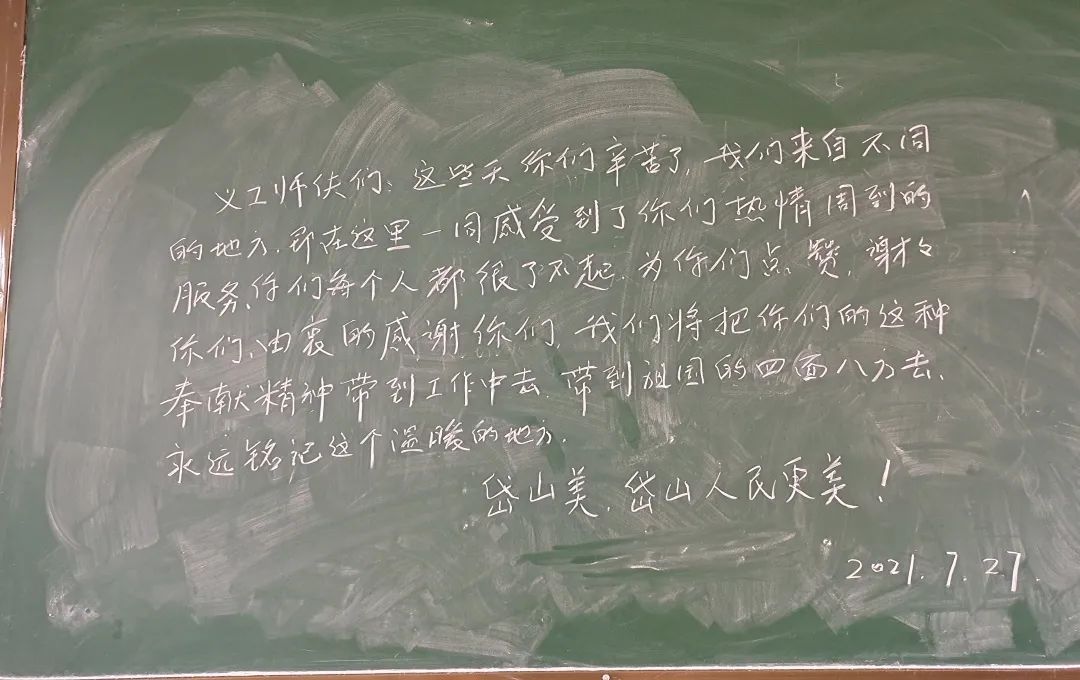 义工师伏们:这些天你们辛苦了,我们来自不同
的地方,却在这里一同感受到了你们热情周到的
服务,你们每个人都很了不起,为你们点赞,谢谢
你们,由衷的感谢你们,我们将把你们的这种
奉献精神带到工作中去,带到祖国的四面八方去,
永远铭记这个温暖的地方.
岱山美,岱山人民更美!
2021.7.27.